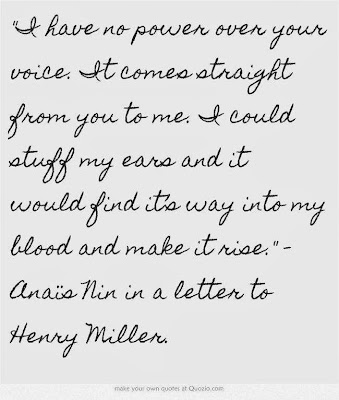 "I have no power over your
voice. It comes straight
from you to me. I could
stuff my ears and it
would find it's way into my
blood and make it rise." -
Anaïs Nin in a letter to
Henry Miller.
make your own quotes at Quozio.com